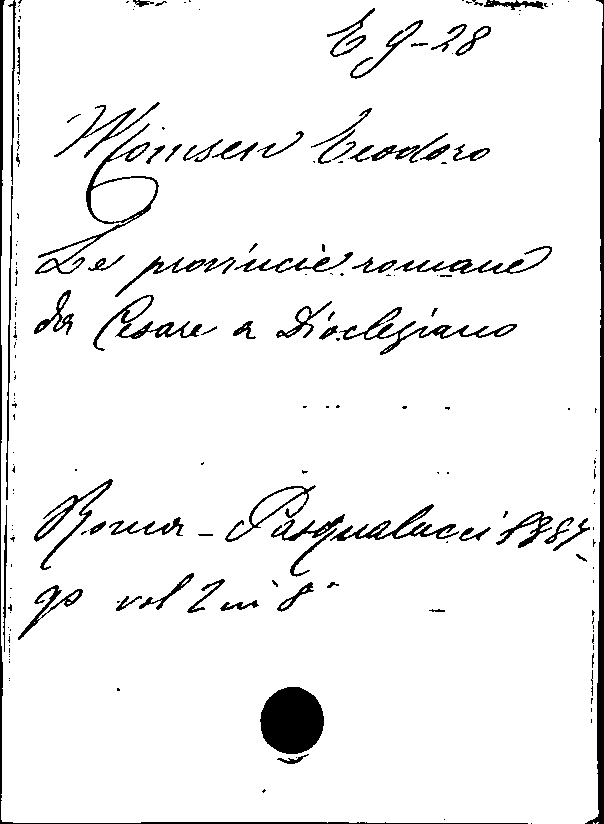 E 9-28
Momsen Teodoro
Le provincie romane
da Cesare a Diocleziano
Roma - Pasqualucci 1887-
90 vol 2 in 8°